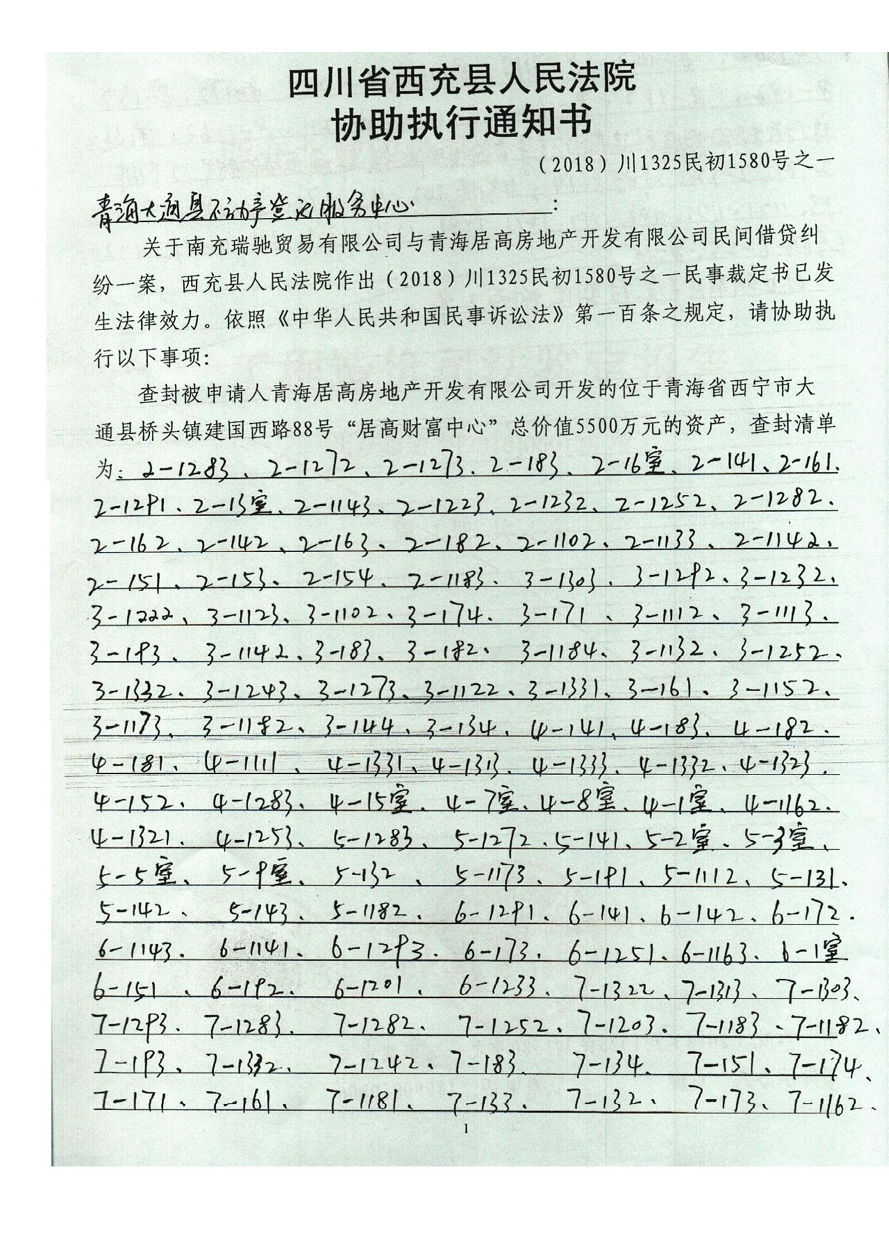 四川省西充县人民法院
协助执行通知书
（2018）川1325民初1580号之一
青海大通县不动产登记服务中心：
关于南充瑞驰贸易有限公司与青海居高房地产开发有限公司民间借贷纠
纷一案，西充县人民法院作出（2018）川1325民初1580号之一民事裁定书已发
生法律效力。依照《中华人民共和国民事诉讼法》第一百条之规定，请协助执
行以下事项：
查封被申请人青海居高房地产开发有限公司开发的位于青海省西宁市大
通县桥头镇建国西路88号“居高财富中心”总价值5500万元的资产，查封清单
为：2-1283、2-1272、2-1273、2-183、2-16室、2-141、2-161、
2-1291、2-13室、2-1143、2-1223、2-1232、2-1252、2-1282、
2-162、2-142、2-163、2-182、2-1102、2-1133、2-1142、
2-151、2-153、2-154、2-1183、3-1303、3-1292、3-1232、
3-1222、3-1123、3-1102、3-174、3-171、3-1112、3-1113、
3-193、3-1142、3-183、3-182、3-1184、3-1132、3-1252、
3-1332、3-1243、3-1273、3-1122、3-1331、3-161、3-1152、
3-1173、3-1182、3-144、3-134、4-141、4-183、4-182、
4-181、4-1111、4-1331、4-1313、4-1333、4-1332、4-1323、
4-152、4-1283、4-15室、4-7室、4-8室、4-1室、4-1162、
4-1321、4-1253、5-1283、5-1272、5-141、5-2室、5-3室、
5-5室、5-9室、5-132、5-1173、5-191、5-1112、5-131、
5-142、5-143、5-1182、6-1291、6-141、6-142、6-172、
6-1143、6-1141、6-1293、6-173、6-1251、6-1163、6-1室
6-151、6-192、6-1201、6-1233、7-1322、7-1313、7-1303、
7-1293、7-1283、7-1282、7-1252、7-1203、7-1183、7-1182、
7-193、7-1332、7-1242、7-183、7-134、7-151、7-174、
7-171、7-161、7-1181、7-133、7-132、7-173、7-1162、
1